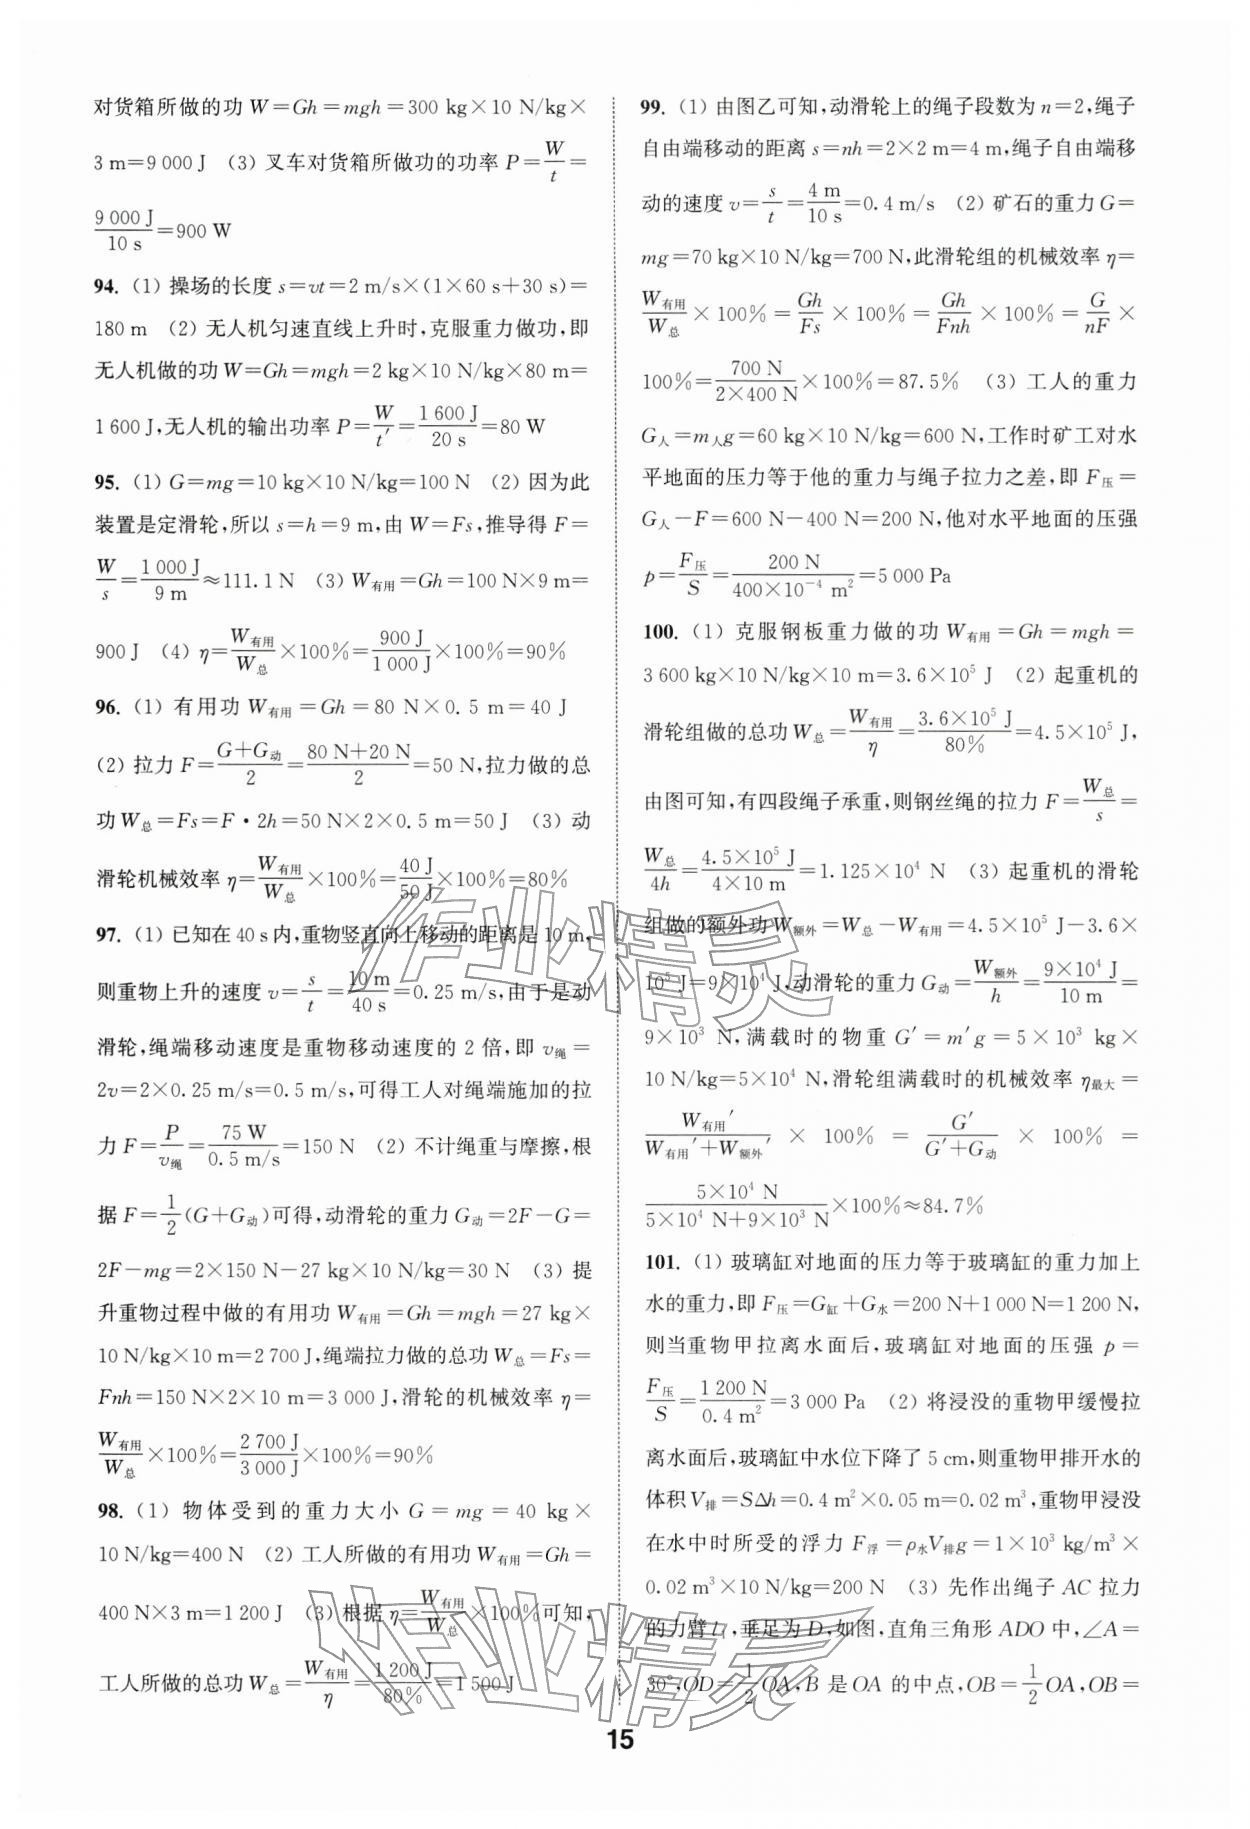 对货箱所做的功 W=Gh=mgh=300 kg×10 N/kg×
3 m=9 000 J (3) 叉车对货箱所做功的功率 P=W/t=
9 000 J/10 s=900 W
94. (1) 操场的长度 s=vt=2 m/s×(1×60 s+30 s)=
180 m (2) 无人机匀速直线上升时,克服重力做功,即
无人机做的功 W=Gh=mgh=2 kg×10 N/kg×80 m=
1 600 J,无人机的输出功率 P=W/t′=1 600 J/20 s=80 W
95. (1) G=mg=10 kg×10 N/kg=100 N (2) 因为此
装置是定滑轮,所以 s=h=9 m,由 W=Fs,推导得 F=
W/s=1 000 J/9 m≈111.1 N (3) W有用=Gh=100 N×9 m=
900 J (4) η=W有用/W总×100%=900 J/1 000 J×100%=90%
96. (1) 有用功 W有用=Gh=80 N×0.5 m=40 J
(2) 拉力 F=(G+G动)/2=(80 N+20 N)/2=50 N,拉力做的总
功 W总=Fs=F·2h=50 N×2×0.5 m=50 J (3) 动
滑轮机械效率 η=W有用/W总×100%=40 J/50 J×100%=80%
97. (1) 已知在 40 s 内,重物竖直向上移动的距离是 10 m,
则重物上升的速度 v=s/t=10 m/40 s=0.25 m/s,由于是动
滑轮,绳端移动速度是重物移动速度的 2 倍,即 v绳=
2v=2×0.25 m/s=0.5 m/s,可得工人对绳端施加的拉
力 F=P/v绳=75 W/0.5 m/s=150 N (2) 不计绳重与摩擦,根
据 F=1/2(G+G动)可得,动滑轮的重力 G动=2F−G=
2F−mg=2×150 N−27 kg×10 N/kg=30 N (3) 提
升重物过程中做的有用功 W有用=Gh=mgh=27 kg×
10 N/kg×10 m=2 700 J,绳端拉力做的总功 W总=Fs=
Fnh=150 N×2×10 m=3 000 J,滑轮的机械效率 η=
W有用/W总×100%=2 700 J/3 000 J×100%=90%
98. (1) 物体受到的重力大小 G=mg=40 kg×
10 N/kg=400 N (2) 工人所做的有用功 W有用=Gh=
400 N×3 m=1 200 J (3) 根据 η=W有用/W总×100%可知,
工人所做的总功 W总=W有用/η=1 200 J/80%=1 500 J
99. (1) 由图乙可知,动滑轮上的绳子段数为 n=2,绳子
自由端移动的距离 s=nh=2×2 m=4 m,绳子自由端移
动的速度 v=s/t=4 m/10 s=0.4 m/s (2) 矿石的重力 G=
mg=70 kg×10 N/kg=700 N,此滑轮组的机械效率 η=
W有用/W总×100%=Gh/Fs×100%=Gh/Fnh×100%=G/nF×
100%=700 N/2×400 N×100%=87.5% (3) 工人的重力
G人=m人g=60 kg×10 N/kg=600 N,工作时矿工对水
平地面的压力等于他的重力与绳子拉力之差,即 F压=
G人−F=600 N−400 N=200 N,他对水平地面的压强
p=F压/S=200 N/400×10⁻⁴ m²=5 000 Pa
100. (1) 克服钢板重力做的功 W有用=Gh=mgh=
3 600 kg×10 N/kg×10 m=3.6×10⁵ J (2) 起重机的
滑轮组做的总功 W总=W有用/η=3.6×10⁵ J/80%=4.5×10⁵ J,
由图可知,有四段绳子承重,则钢丝绳的拉力 F=W总/s=
W总/4h=4.5×10⁵ J/4×10 m=1.125×10⁴ N (3) 起重机的滑轮
组做的额外功 W额外=W总−W有用=4.5×10⁵ J−3.6×
10⁵ J=9×10⁴ J,动滑轮的重力 G动=W额外/h=9×10⁴ J/10 m=
9×10³ N,满载时的物重 G′=m′g=5×10³ kg×
10 N/kg=5×10⁴ N,滑轮组满载时的机械效率 η最大=
W有用′/(W有用′+W额外′)×100%=G′/(G′+G动)×100%=
5×10⁴ N/(5×10⁴ N+9×10³ N)×100%≈84.7%
101. (1) 玻璃缸对地面的压力等于玻璃缸的重力加上
水的重力,即 F压=G缸+G水=200 N+1 000 N=1 200 N,
则当重物甲拉离水面后,玻璃缸对地面的压强 p=
F压/S=1 200 N/0.4 m²=3 000 Pa (2) 将浸没的重物甲缓慢拉
离水面后,玻璃缸中水位下降了 5 cm,则重物甲排开水的
体积 V排=SΔh=0.4 m²×0.05 m=0.02 m³,重物甲浸没
在水中时所受的浮力 F浮=ρ水V排g=1×10³ kg/m³×
0.02 m³×10 N/kg=200 N (3) 先作出绳子 AC 拉力
的力臂 l₁,垂足为 D,如图,直角三角形 ADO 中,∠A=
30°,OD=1/2 OA,B 是 OA 的中点,OB=1/2 OA,OB=
15
作业精灵
作业精灵